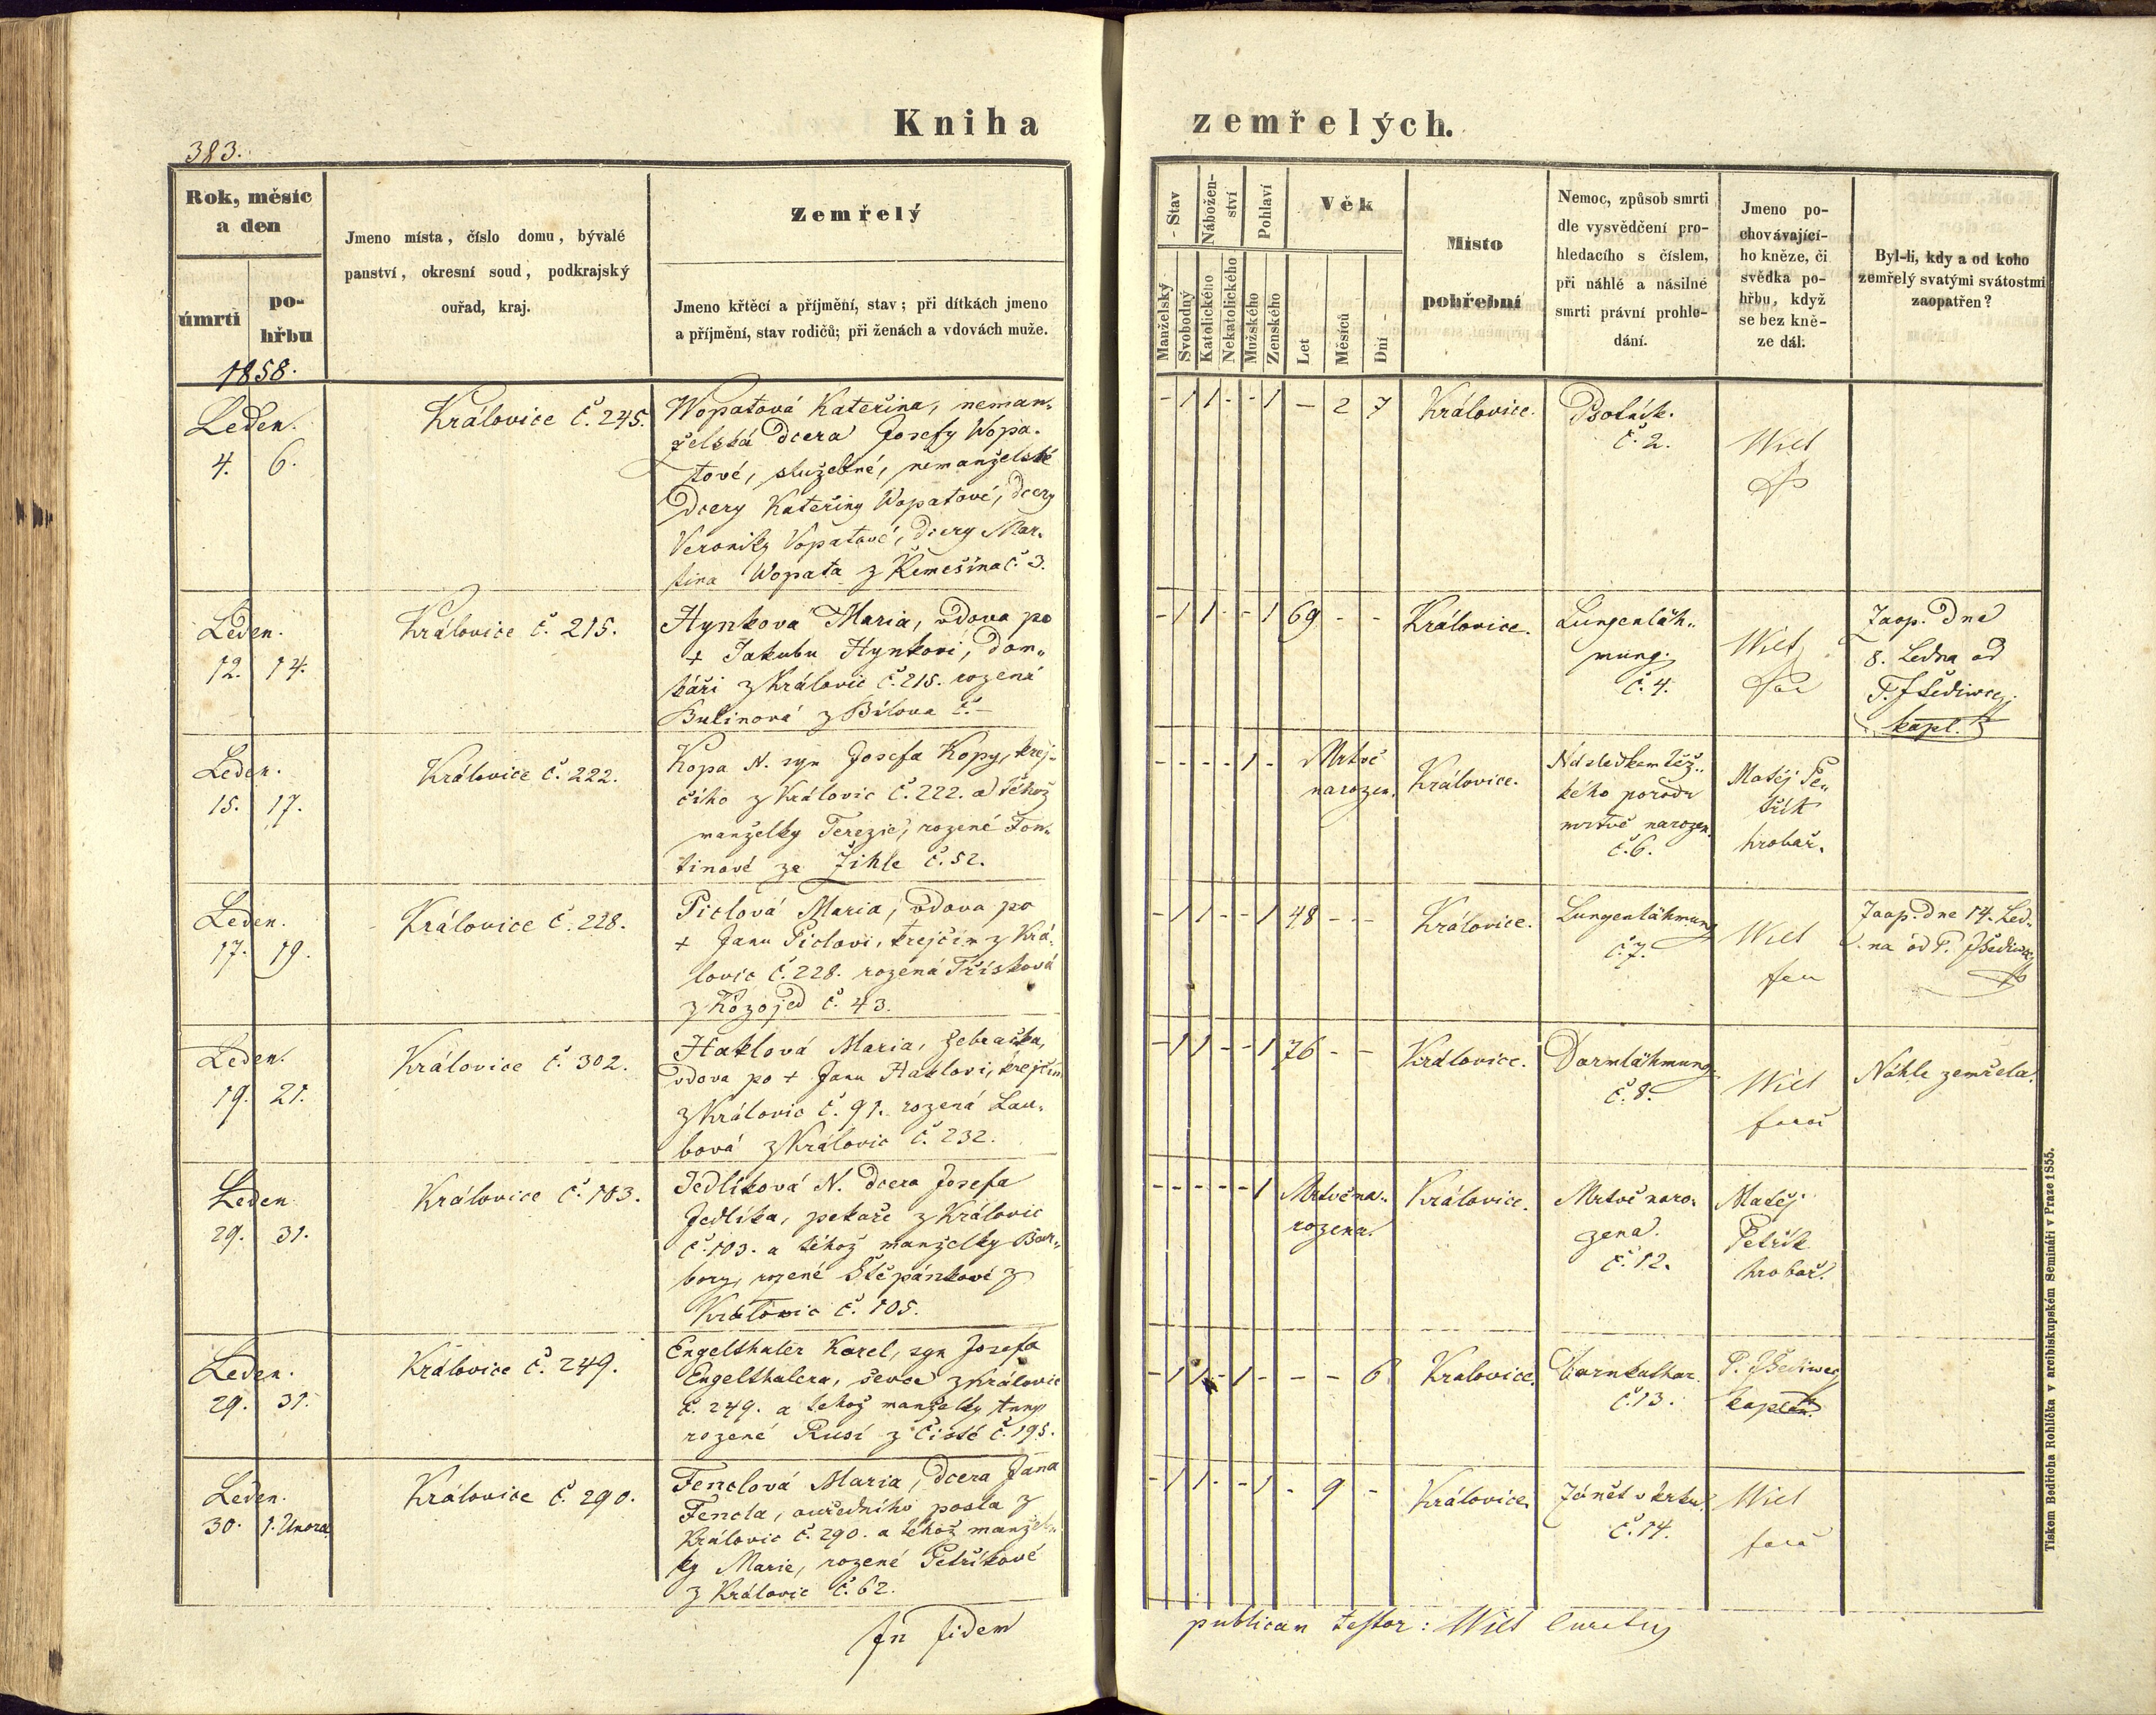 Kniha
zemřelých.
383.
Rok, měsíc
a den
úmrtí
po-
hřbu
1858.
Jmeno místa, číslo domu, bývalé
panství, okresní soud, podkrajský
ouřad, kraj.
Zemřelý
Jmeno křtěcí a příjmění, stav; při dítkách jmeno
a příjmění, stav rodičů; při ženách a vdovách muže.
- Stav
Manželský
Svobodný
Nábožen-
ství
Katolického
Nekatolického
Pohlaví
Mužského
Zenského
Věk
Let
Měsíců
Dní -
Místo
pohřební
Nemoc, způsob smrti
dle vysvědčení pro-
hledacího s číslem,
při náhlé a násilné
smrti právní prohle-
dání.
Jmeno po-
chovávající-
ho kněze, či
svědka po-
hřbu, když
se bez kně-
ze dál.
Byl-li, kdy a od koho
zemřelý svatými svátostmi
zaopatřen?
Leden.
4. 6.
Královice č. 245.
Wopatová Kateřina, neman„
želská dcera Josefy Wopa„
tové, služebné, nemanželské
dcery Kateřiny Wopatové, dcery
Veroniky Vopatové, dcery Mar„
tina Wopata z Řemešína č. 3.
- 1 1 - - 1 - 2 7
Královice.
Psotník.
č. 2.
Wilt
Leden.
12. 14.
Královice č. 215.
Hynková Maria, vdova po
+ Jakubu Hynkovi, dom„
káři z Královic č. 215. rozená
Bulinová z Bílova č. -
- 1 1 - - 1 69 - -
Královice.
Lungenläh„
mung.
č. 4.
Wilt
Zaop. dne
8. Ledna od
P. J Šediwec
kapl.
Leden.
15. 17.
Královice č. 222.
Kopa N. syn Josefa Kopy, krej„
čího z Královic č. 222. a téhož
manželky Terezie, rozené Fon„
tinové ze Žihle č. 52.
- - - - 1 - Mrtvě
narozen.
Královice.
Následkem těž„
kého porodu
mrtvě narozen.
č. 6.
Matěj Pe„
třík
hrobař.
Leden.
17. 19.
Královice č. 228.
Piclová Maria, vdova po
+ Janu Piclovi, krejčím z Krá„
lovic č. 228. rozená Třísková
z Kozojed č. 43.
- 1 1 - - 1 48 - -
Královice.
Lungenlähmung
č. 7.
Wilt
far
Zaop. dne 14. Led„
na od P. J Šediwec
Leden.
19. 21.
Královice č. 302.
Haklová Maria, žebračka,
vdova po + Janu Haklovi, krejčím
z Královic č. 91. rozená Lau„
bová z Královic č. 232.
- 1 1 - - 1 76 - -
Královice.
Darmlähmung
č. 8.
Wilt
farář
Náhle zemřela.
Leden
29. 31.
Královice č. 103.
Jedlíková N. dcera Josefa
Jedlíka, pekaře z Královic
č. 103. a téhož manželky Bar„
bory, rozené Štěpánkové z
Královic č. 105.
- - - - - 1 Mrtvě na„
rozena.
Královice.
Mrtvě naro„
zena.
č. 12.
Matěj
Petřík
hrobař.
Leden.
29. 31.
Královice č. 249.
Engelthaler Karel, syn Josefa
Engelthalera, ševce z Královic
č. 249. a tehož manželky Anny
rozené Rusí z Čisté č. 195.
- 1 1 - 1 - - - 6
Kralovice.
Darmkathar.
č. 13.
P. J Šediwec
kaplan.
Leden.
30. 1. Února.
Královice č. 290.
Fenclová Maria, dcera Jana
Fencla, ouředního posla z
Královic č. 290. a téhož manžel„
ky Marie, rozené Petříkové
z Královic č. 62.
- 1 1 - - 1 - 9 -
Královice.
Zánět v krku.
č. 14.
Wilt
farář
In fidem
publicam testor: Wilt Curatus
Tiskem Bedřicha Rohlíčka v arcibiskupském Semináři v Praze 1855.